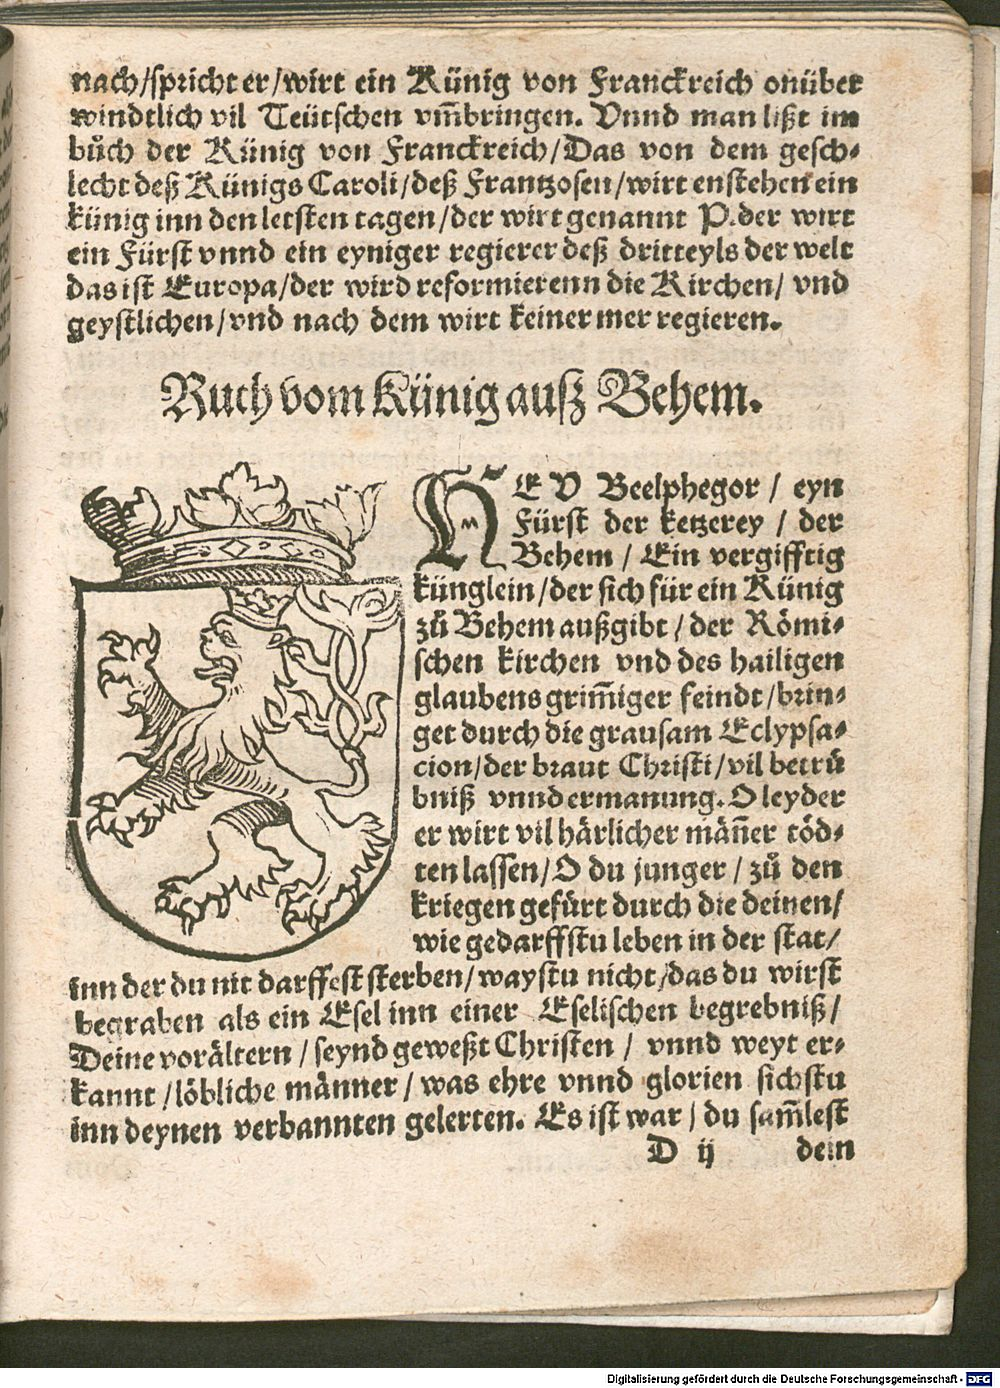 nach/spricht er/wirt ein Künig von Franckreich onüber
windtlich vil Teütschen vm̄bringen. Vnnd man lißt im
bůch der Künig von Franckreich/Das von dem gesch⸗
lecht deß Künigs Caroli/deß Frantzosen/wirt enstehen ein
künig inn den letsten tagen/der wirt genannt P. der wirt
ein Fürst vnnd ein eyniger regierer deß dritteyls der welt
das ist Europa/der wird reformierenn die Kirchen/ vnd
geystlichen/vnd nach dem wirt keiner mer regieren.
Auch vom Künig auß Behem.
NEV Beelphegor / eyn
Fürst der ketzerey / der
Behem / Ein vergifftig
künglein/der sich für ein Künig
zů Behem außgibt/der Römi⸗
schen kirchen vnd des hailigen
glaubens grim̄iger feindt/brin⸗
get durch die grausam Eclypsa⸗
cion/der braut Christi/vil betrü
bniß vnnd ermanung. O leyder
er wirt vil härlicher män̄er töd⸗
ten lassen/O du junger / zů den
kriegen gefürt durch die deinen/
wie gedarffstu leben in der stat/
inn der du nit darffest sterben/waystu nicht/das du wirst
begraben als ein Esel inn einer Eselischen begrebniß/
Deine vorältern / seynd geweßt Christen / vnnd weyt er⸗
kannt /löbliche männer/was ehre vnnd glorien sichstu
inn deynen verbannten gelerten. Es ist war/ du sam̄lest
D ij dem
Digitalisierung gefördert durch die Deutsche Forschungsgemeinschaft - DFG